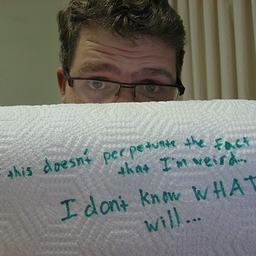 this doesn't perpetuate the fact
that I'm weird...
I don't know WHAT
will...